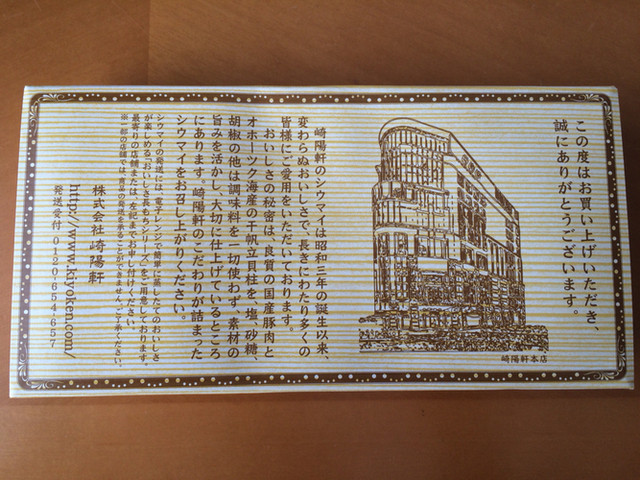 この度はお買い上げいただき、
誠にありがとうございます。
崎陽軒本店
崎陽軒のシウマイは昭和三年の誕生以来、
変わらぬおいしさで、長きにわたり多くの
皆様にご愛用をいただいております。
おいしさの秘密は、良質の国産豚肉と
オホーツク海産の干帆立貝柱を、塩、砂糖、
胡椒の他は調味料を一切使わず、素材の
旨みを活かし、大切に仕上げているところ
にあります。崎陽軒のこだわりが詰まった
シウマイをお召し上がりください。
シウマイの発送には、電子レンジで簡単に蒸したてのおいしさ
が楽しめる「おいしさ長もちシリーズ」をご用意しております。
最寄りの店舗または、下記までお申し付けください。
※一部の店舗では、商品の発送を承ることができません。ご了承ください。
株式会社崎陽軒
http://www.kiyoken.com/
発送受付 0120654657